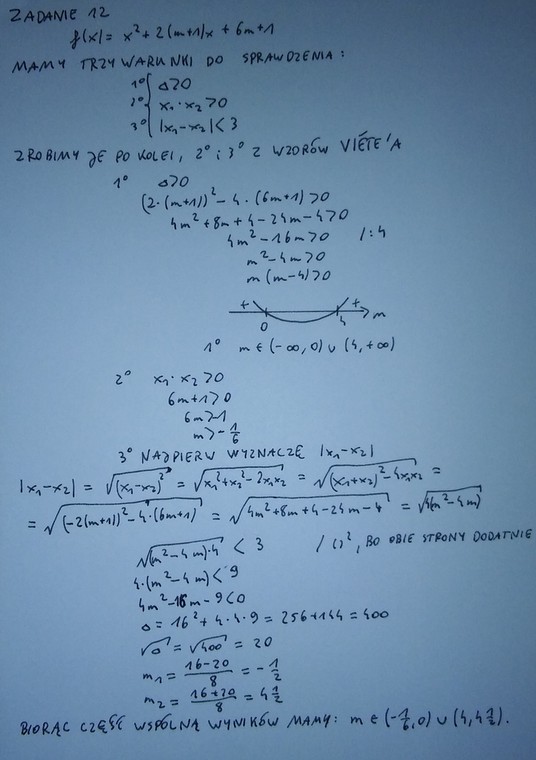 ZADANIE 12
f(x) = x² + 2(m+1)x + 6m+1
MAMY TRZY WARUNKI DO SPRAWDZENIA:
1° Δ>0
2° x₁·x₂>0
3° |x₁-x₂|<3
ZROBIMY JE PO KOLEI, 2° i 3° Z WZORÓW VIÉTE'A
1° Δ>0
(2·(m+1))² - 4·(6m+1)>0
4m²+8m+4-24m-4>0
4m²-16m>0 /:4
m²-4m>0
m(m-4)>0
+ + m
0 4
1° m∈(-∞,0)∪(4,+∞)
2° x₁·x₂>0
6m+1>0
6m>-1
m>-1/6
3° NAJPIERW WYZNACZĘ |x₁-x₂|
|x₁-x₂| = √(x₁-x₂)² = √x₁²+x₂²-2x₁x₂ = √(x₁+x₂)²-4x₁x₂ =
= √(-2(m+1))²-4·(6m+1) = √4m²+8m+4-24m-4 = √4(m²-4m)
√(m²-4m)·4 < 3 /()², BO OBIE STRONY DODATNIE
4·(m²-4m)<9
4m²-16m-9<0
Δ=16²+4·4·9=256+144=400
√Δ=√400=20
m₁=16-20/8=-1/2
m₂=16+20/8=4 1/2
BIORĄC CZĘŚĆ WSPÓLNĄ WYNIKÓW MAMY: m∈(-1/6,0)∪(4,4 1/2).